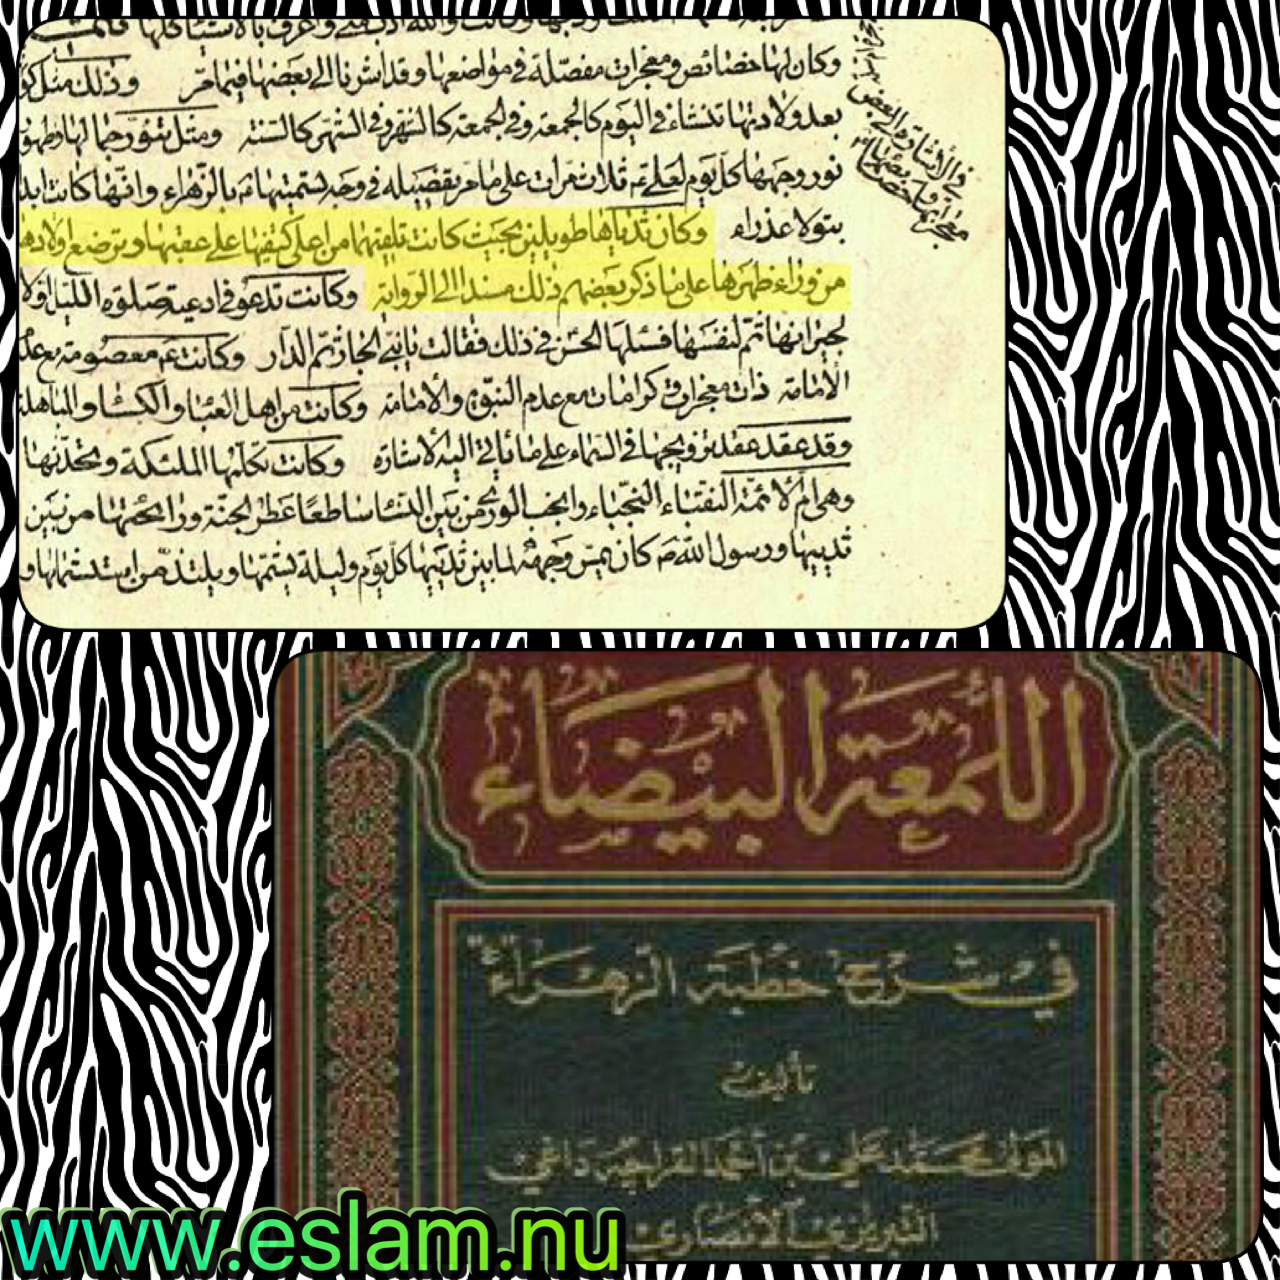 وكان لها خصائص ومعجزات مفصّلة في مواضعها وقد اشرنا الى بعضها فيما مرّ وذلك مثل
بعد ولادتها تنشاء في اليوم كالجمعة وفي الجمعة كالشهر وفي الشهر كالسنة ومثل تنوّر جمالها وظهور
نور وجهها كل يوم لعلي ع ثلاث مرات على ما مر تفصيله في وجه تسميتها ع بالزهراء وانها كانت ابدا
بتولا عذراء وكان ثدياها طويلين بحيث كانت تلقيهما من اعلى كتفيها على عقبها وترضع اولادها
من وراء ظهرها على ما ذكر بعضهم ذلك مسندا الى الرواية وكانت تدعو في ادعية صلوة الليل اولا
لجيرانها ثم لنفسها فسئلها الحسن في ذلك فقالت يا بني الجار ثم الدار وكانت ع معصومة مع عدم
الأمامة ذات معجزات وكرامات مع عدم النبوة والأمامة وكانت من اهل العبا والكساء والمباهلة
وقد عقد عقد تزويجها في السماء على ما يأتي اليه الاشارة وكانت تكلّمها الملئكة وتحدّثها
وهي ام الأئمة النقباء النجباء وانجب الورى من بين النساء ساطعا عطر الجنة ورائحتها من بين
ثدييها ورسول الله ص كان يمس وجهه لما بين ثدييها كل يوم وليلة يشمّها ويلتذ من استشمامها
في الأشارة الى بعض
معجزاتها وخصائصها
اللمعة البيضاء
في شرح خطبة الزهراء
تأليف
المولى محمد علي بن أحمد القراچه داغي
التبريزي الأنصاري
www.eslam.nu